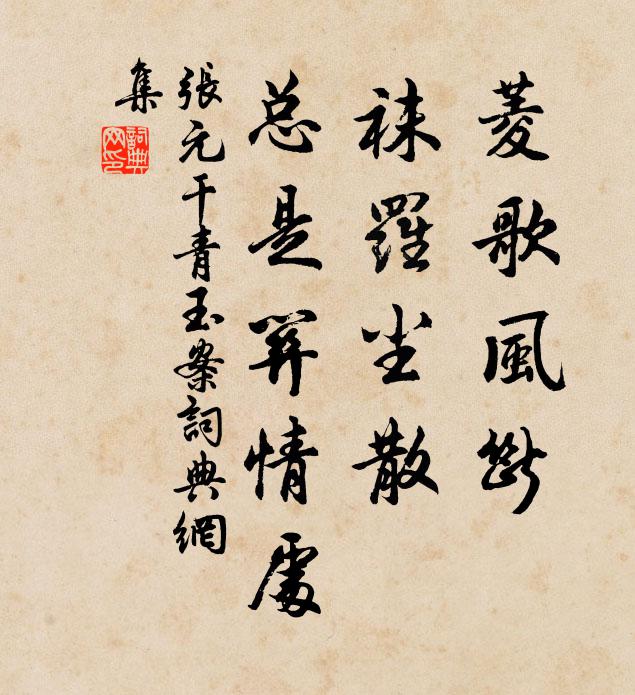 菱歌風斷
袜羅尘散
总是關情處
張元干青玉案詞典網
集
詞典網印